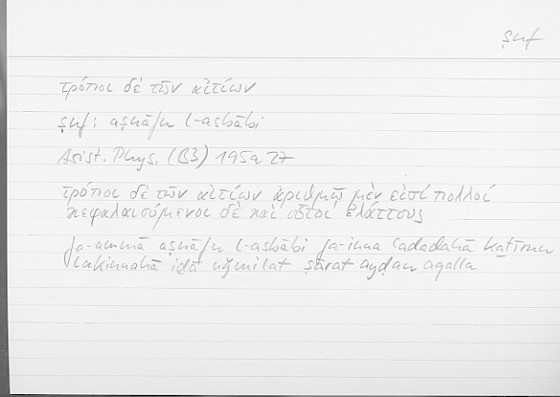 ṣnf
τρόποι δὲ τῶν αἰτίων
ṣnf: aṣnāfu l-asbābi
Arist. Phys. (B3) 195a27
τρόποι δὲ τῶν αἰτίων ἀριθμῷ μέν εἰσι πολλοί
κεφαλαιούμενοι δὲ καὶ οὗτοι ἐλάττους
fa-ammā aṣnāfu l-asbābi fa-inna ʿadadahā kaṯīrun
lākinnahā iḏā uǧmilat ṣārat ayḍan aqalla